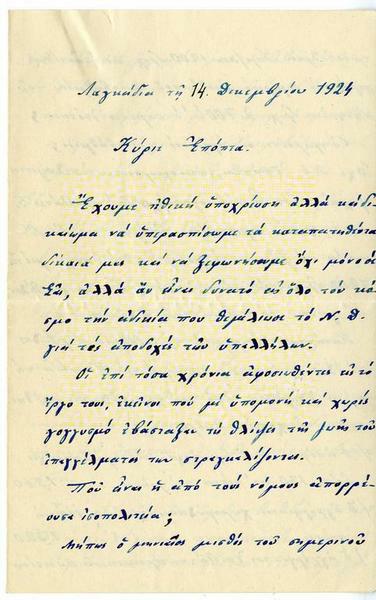 Λαγκάδια τῇ 14 Δεκεμβρίου 1924
Κύριε Ἐπόπτα.
Ἔχουμε ἠθικὴ ὑποχρέωση ἀλλὰ καὶ δι
καίωμα νὰ ὑπερασπίσωμε τὰ καταπατηθέντα
δίκαιά μας καὶ νὰ ξεφωνήσωμε ὄχι μόνο σὲ
Σᾶς, ἀλλὰ ἂν εἶναι δυνατὸ εἰς ὅλο τὸν κό
σμο τὴν ἀδικία ποὺ θεμελίωσε τὸ Ν. Δ.
γιὰ τὰς ἀποδοχὰς τῶν ὑπαλλήλων.
Οἱ ἐπὶ τόσα χρόνια ἀφοσιωθέντες εἰς τὸ
ἔργο τους, ἐκεῖνοι ποὺ μὲ ὑπομονὴ καὶ χωρὶς
γογγυσμὸ ἐβάσταξαν τὲς θλίψεις τῆς ζωῆς τοῦ
ἐπαγγέλματός των στραγγαλίζονται.
Ποῦ εἶναι ἡ ἀπὸ τοὺς νόμους ἀπορρέ
ουσα ἰσοπολιτεία;
Μήπως ὁ μηνιαῖος μισθὸς τοῦ σημερινοῦ